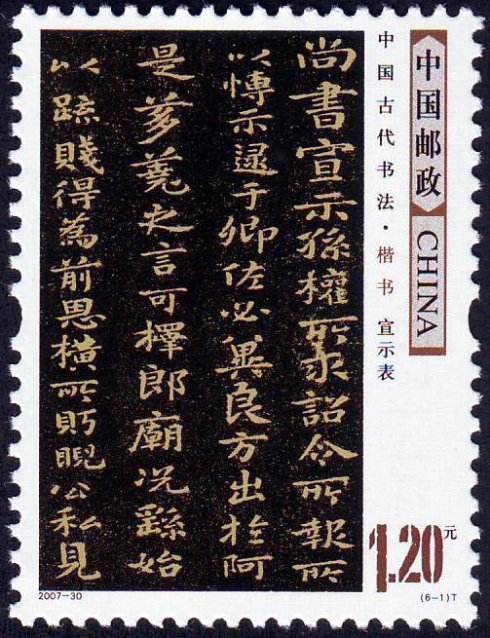 中国邮政 CHINA
中国古代书法·楷书 宣示表
尚書宣示孫權所求詔令所報所
以博示逮于卿佐必冀良方出於阿
是芻蕘之言可擇郎廟況繇始
以疏賤得為前恩橫所盻睨公私見
1.20元
2007-30
(6-1)T